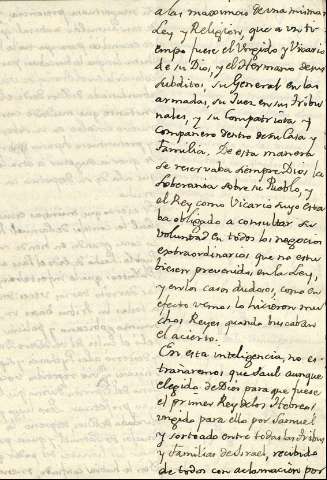 a las maximas de una misma
Ley y Religion, que a un ti
empo fuese el Ungido y Vicario
de su Dios, y el Hermano de sus
subditos, su General en las
armadas, su Juez en sus Tribu
nales, y su Compatriota y
Compañero dentro de su Casa y
Familia. De esta manera
se reservaba siempre Dios la
Soberania sobre su Pueblo, y
el Rey como Vicario suyo esta
ba obligado a consultar su
voluntad en todos los negocios
extraordinarios que no estu
biesen prevenidos en la Ley,
y en los casos dudosos, como en
efecto vemos lo hicieron mu
chos Reyes quando buscaban
el acierto.
En esta inteligencia, no es-
trañaremos que Saul aunque
elegido de Dios para que fuese
el primer Rey de los Hebreos
ungido para ello por Samuel
y sorteado entre todas las Tribus
y Familias de Israel, recibido
de todos con aclamacion por